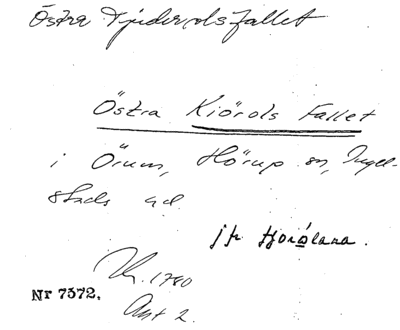 Östra Tjuderolsfallet
Östra Kiörols Fallet
i Örum, Hörup sn, Ingel-
stads hd.
jfr
Uk. 1780
Nr 7372.
Akt 2.